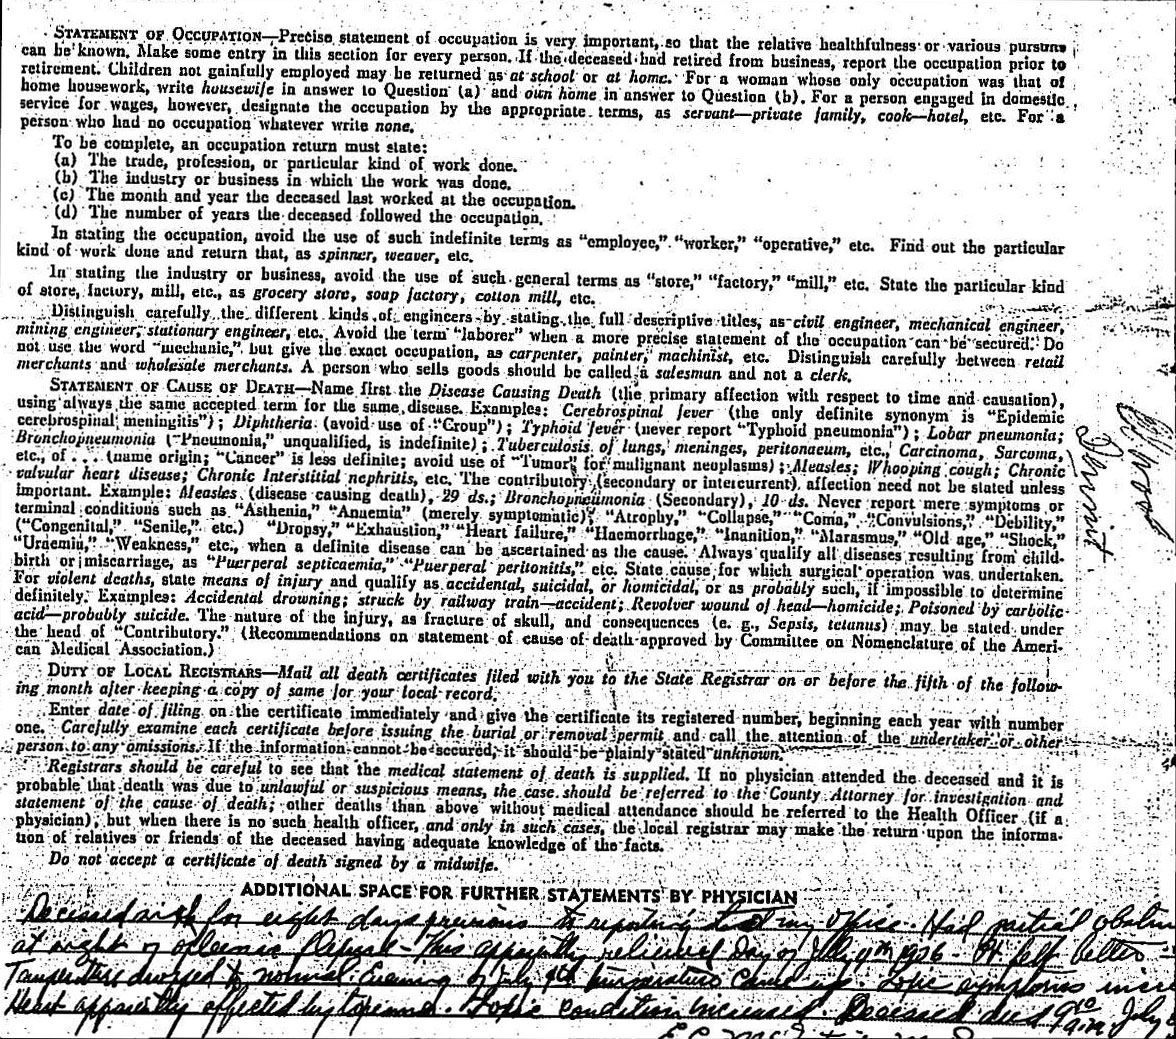 STATEMENT OF OCCUPATION—Precise statement of occupation is very important, so that the relative healthfulness or various pursuits
can be known. Make some entry in this section for every person. If the deceased had retired from business, report the occupation prior to
retirement. Children not gainfully employed may be returned as at school or at home. For a woman whose only occupation was that of
home housework, write housewife in answer to Question (a) and own home in answer to Question (b). For a person engaged in domestic
service for wages, however, designate the occupation by the appropriate terms, as servant—private family, cook—hotel, etc. For a
person who had no occupation whatever write none.
To be complete, an occupation return must state:
(a) The trade, profession, or particular kind of work done.
(b) The industry or business in which the work was done.
(c) The month and year the deceased last worked at the occupation.
(d) The number of years the deceased followed the occupation.
In stating the occupation, avoid the use of such indefinite terms as "employee," "worker," "operative," etc. Find out the particular
kind of work done and return that, as spinner, weaver, etc.
In stating the industry or business, avoid the use of such general terms as "store," "factory," "mill," etc. State the particular kind
of store, factory, mill, etc., as grocery store, soap factory, cotton mill, etc.
Distinguish carefully the different kinds of engineers by stating the full descriptive titles, as civil engineer, mechanical engineer,
mining engineer, stationary engineer, etc. Avoid the term "laborer" when a more precise statement of the occupation can be secured. Do
not use the word "mechanic," but give the exact occupation, as carpenter, painter, machinist, etc. Distinguish carefully between retail
merchants and wholesale merchants. A person who sells goods should be called a salesman and not a clerk.
STATEMENT OF CAUSE OF DEATH—Name first the Disease Causing Death (the primary affection with respect to time and causation),
using always the same accepted term for the same disease. Examples: Cerebrospinal fever (the only definite synonym is "Epidemic
cerebrospinal meningitis"); Diphtheria (avoid use of "Croup"); Typhoid fever (never report "Typhoid pneumonia"); Lobar pneumonia;
Bronchopneumonia ("Pneumonia," unqualified, is indefinite); Tuberculosis of lungs, meninges, peritonaeum, etc., Carcinoma, Sarcoma,
etc., of . . . (name origin; "Cancer" is less definite; avoid use of "Tumor" for malignant neoplasms); Measles; Whooping cough; Chronic
valvular heart disease; Chronic Interstitial nephritis, etc. The contributory (secondary or intercurrent) affection need not be stated unless
important. Example: Measles (disease causing death), 29 ds.; Bronchopneumonia (Secondary), 10 ds. Never report mere symptoms or
terminal conditions such as "Asthenia," "Anaemia" (merely symptomatic), "Atrophy," "Collapse," "Coma," "Convulsions," "Debility,"
("Congenital," "Senile," etc.) "Dropsy," "Exhaustion," "Heart failure," "Haemorrhage," "Inanition," "Marasmus," "Old age," "Shock,"
"Uraemia," "Weakness," etc., when a definite disease can be ascertained as the cause. Always qualify all diseases resulting from child-
birth or miscarriage, as "Puerperal septicaemia," "Puerperal peritonitis," etc. State cause for which surgical operation was undertaken.
For violent deaths, state means of injury and qualify as accidental, suicidal, or homicidal, or as probably such, if impossible to determine
definitely. Examples: Accidental drowning; struck by railway train—accident; Revolver wound of head—homicide; Poisoned by carbolic
acid—probably suicide. The nature of the injury, as fracture of skull, and consequences (e. g., Sepsis, tetanus) may be stated under
the head of "Contributory." (Recommendations on statement of cause of death approved by Committee on Nomenclature of the Ameri-
can Medical Association.)
DUTY OF LOCAL REGISTRARS—Mail all death certificates filed with you to the State Registrar on or before the fifth of the follow-
ing month after keeping a copy of same for your local record.
Enter date of filing on the certificate immediately and give the certificate its registered number, beginning each year with number
one. Carefully examine each certificate before issuing the burial or removal permit and call the attention of the undertaker or other
person to any omissions. If the information cannot be secured, it should be plainly stated unknown.
Registrars should be careful to see that the medical statement of death is supplied. If no physician attended the deceased and it is
probable that death was due to unlawful or suspicious means, the case should be referred to the County Attorney for investigation and
statement of the cause of death; other deaths than above without medical attendance should be referred to the Health Officer (if a
physician), but when there is no such health officer, and only in such cases, the local registrar may make the return upon the informa-
tion of relatives or friends of the deceased having adequate knowledge of the facts.
Do not accept a certificate of death signed by a midwife.
ADDITIONAL SPACE FOR FURTHER STATEMENTS BY PHYSICIAN
Deceased sick for eight days previous to reporting to my office. Had partial
at night of . This apparently relieved Day of July 9th 1926 - Pt felt better -
Temperature dropped to normal. Evening of July 9th temperature came up. Toxic symptoms
Heart apparently affected by toxemia. Toxic condition increased. Deceased died 9 a.m. July